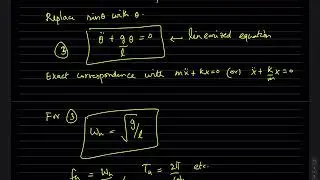 Replace sinθ with θ.
③ θ̈ + g/l θ = 0 ← linearized equation
Exact correspondence with mẍ + kx = 0 (or) ẍ + k/m x = 0
For ③
ωn = √g/l
fn = ωn Tn = 2π etc.